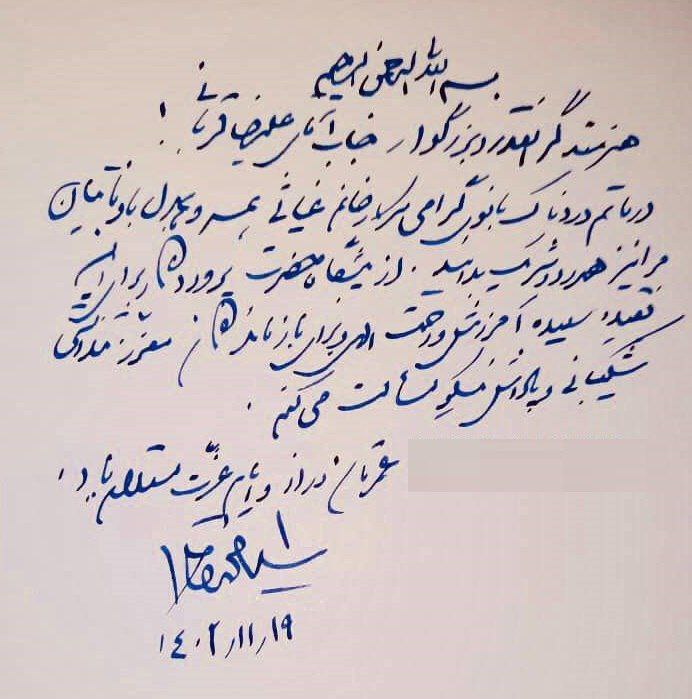 بسم الله الرحمن الرحیم
هنرمند گرانقدر و بزرگوار جناب آقای علیرضا قربانی!
در ماتم دردناک بانوی گرامی سرکار خانم غیاثی همسر و همدل باوفایتان
مرا نیز همدرد و شریک بدانید. از پیشگاه حضرت پروردگار برای آن
فقیده سعیده آمرزش و رحمت الهی و برای بازماندگان معزز
شکیبائی و پاداش نیکو مسألت می‌کنم.
عمرتان دراز و ایام عزت مستدام باد،
۱۴۰۲/۱۱/۱۹